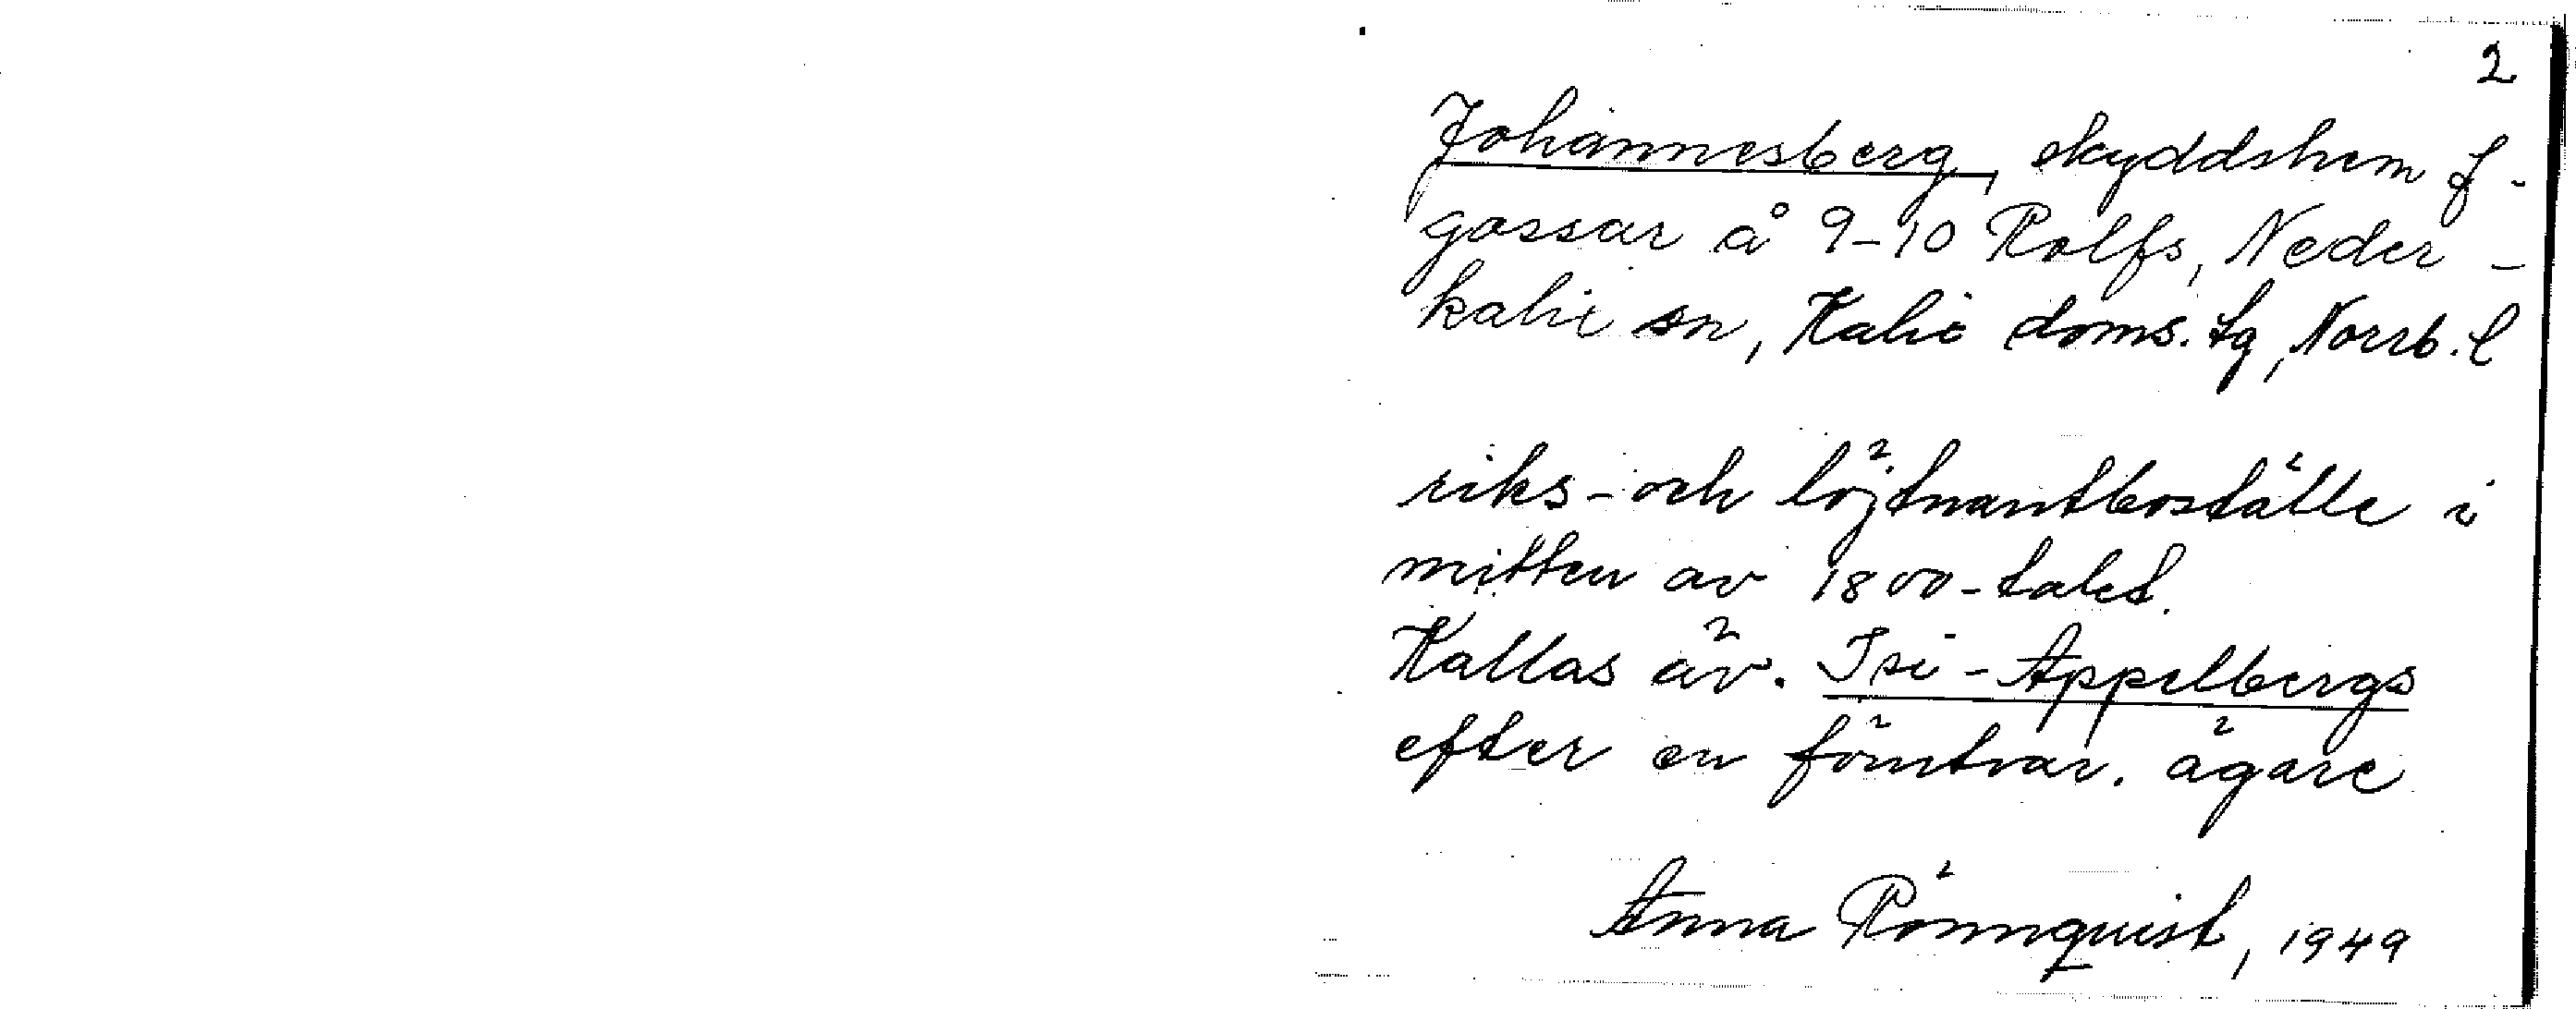 2
Johannesberg, skyddshem f.
gossar å 9-10 Rolfs, Neder-
kalix sn, Kalix doms. tg, Norrb. l
riks- och löjtnantboställe i
mitten av 1800-talet.
Kallas äv. Isi-Appelbergs
efter en förutvar. ägare
Anna Rönnquist, 1949